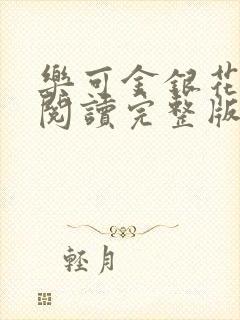 樂可金銀花
閱讀完整版
輕月